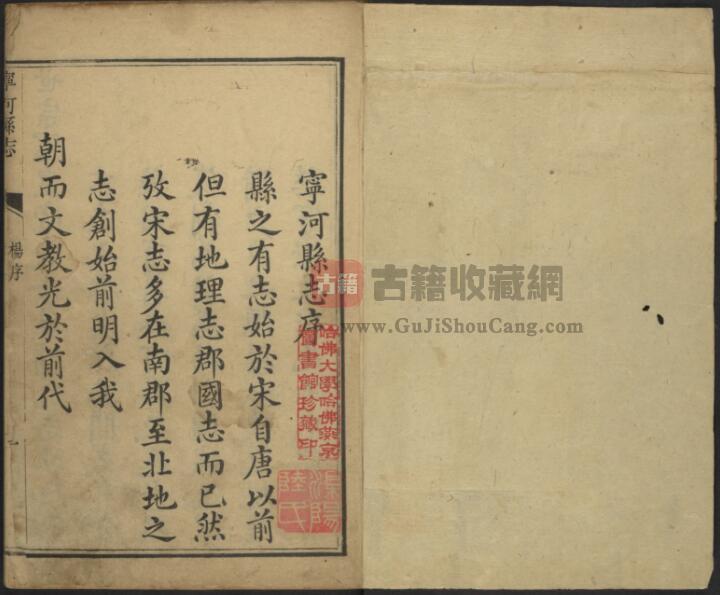 寧河縣志序
縣之有志始於宋自唐以前
但有地理志郡國志而已然
攷宋志多在南郡至北地之
志創始前明入我
朝而文教光於前代
寧河縣志
楊序
一
哈佛大學哈佛燕京
圖書館珍藏印
陸氏
古籍
古籍收藏網
www.GuJiShouCang.com